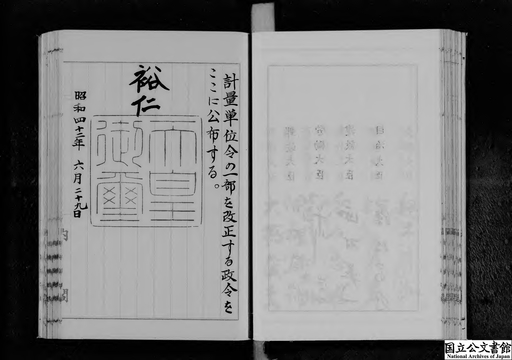 計量単位令の一部を改正する政令を
ここに公布する。
裕仁
天皇
御璽
昭和四十二年 六月二十九日
国立公文書館
National Archives of Japan